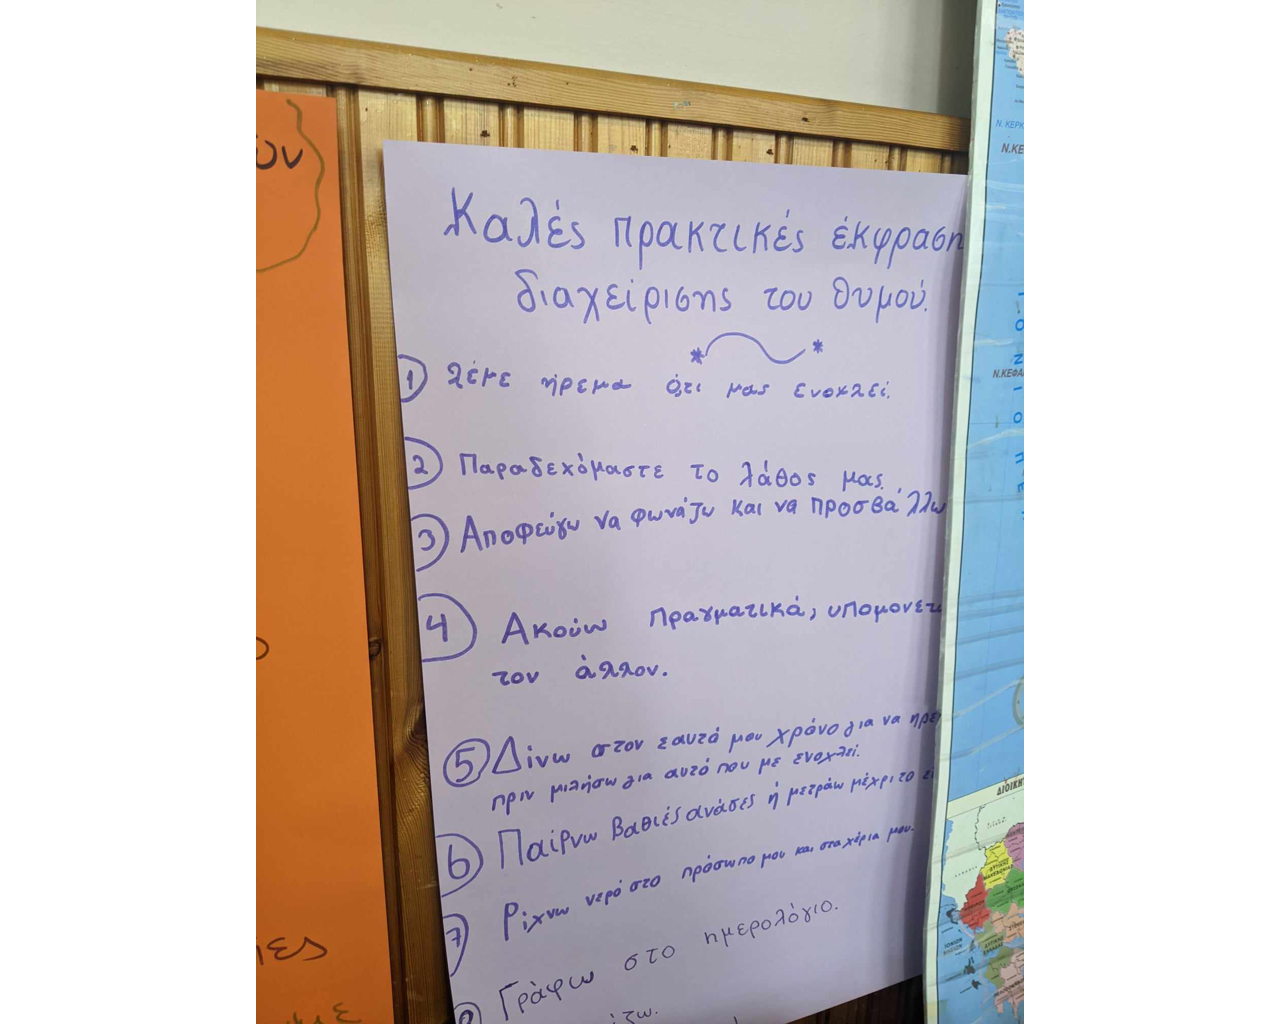 Καλές πρακτικές έκφραση
διαχείρισης του θυμού.
1 Λέμε ήρεμα ό,τι μας ενοχλεί.
2 Παραδεχόμαστε το λάθος μας.
3 Αποφεύγω να φωνάζω και να προσβάλλω
4 Ακούω πραγματικά, υπομονετ
τον άλλον.
5 Δίνω στον εαυτό μου χρόνο για να ηρε
πριν μιλήσω για αυτό που με ενοχλεί.
6 Παίρνω βαθιές ανάσες ή μετράω μέχρι το
7 Ρίχνω νερό στο πρόσωπο μου και στα χέρια μου.
8 Γράφω στο ημερολόγιο.
ών
Ν. ΚΕΡΚ
Ν.ΚΕ
Ν.ΚΕΦΑΛ
ΔΙΟΙΚΗΤ
ΔΥΤΙΚΗΣ
ΜΑΚΕΔΟΝΙΑΣ
ΙΟΝΙΩΝ
ΝΗΣΩΝ
ΔΥΤΙΚΗΣ
ΕΛΛΑΔΑΣ